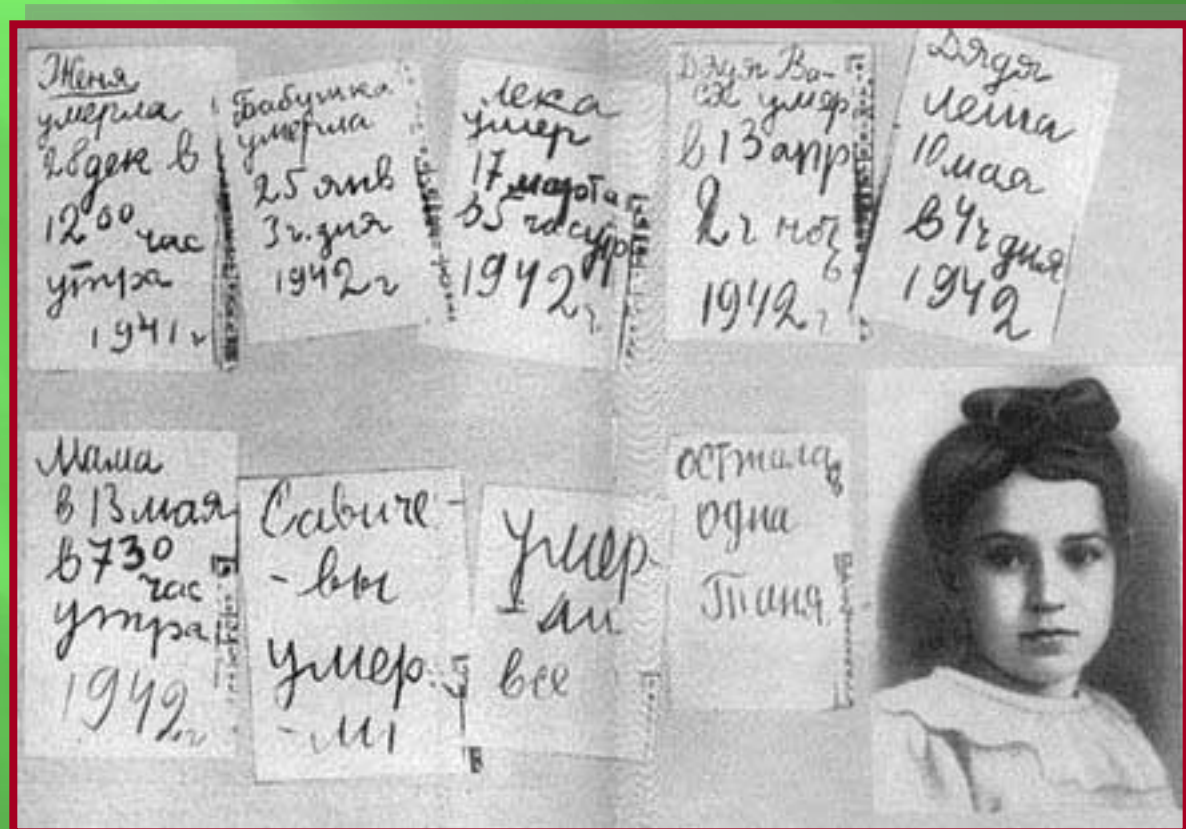 Женя
умерла
28 дек в
12 00 час
утра
1941 г
Бабушка
умерла
25 янв
3 ч. дня
1942 г
Лека
умер
17 марта
в 5 час утр
1942 г.
Дядя Ва-
ся умер
в 13 апр
2 ч ночь
1942 г
Дядя
Леша
10 мая
в 4 ч дня
1942
Мама
в 13 мая
в 7 30
час
утра
1942 г
Савиче-
-вы
умер
-ли
Умер
-ли
все
Осталась
одна
Таня